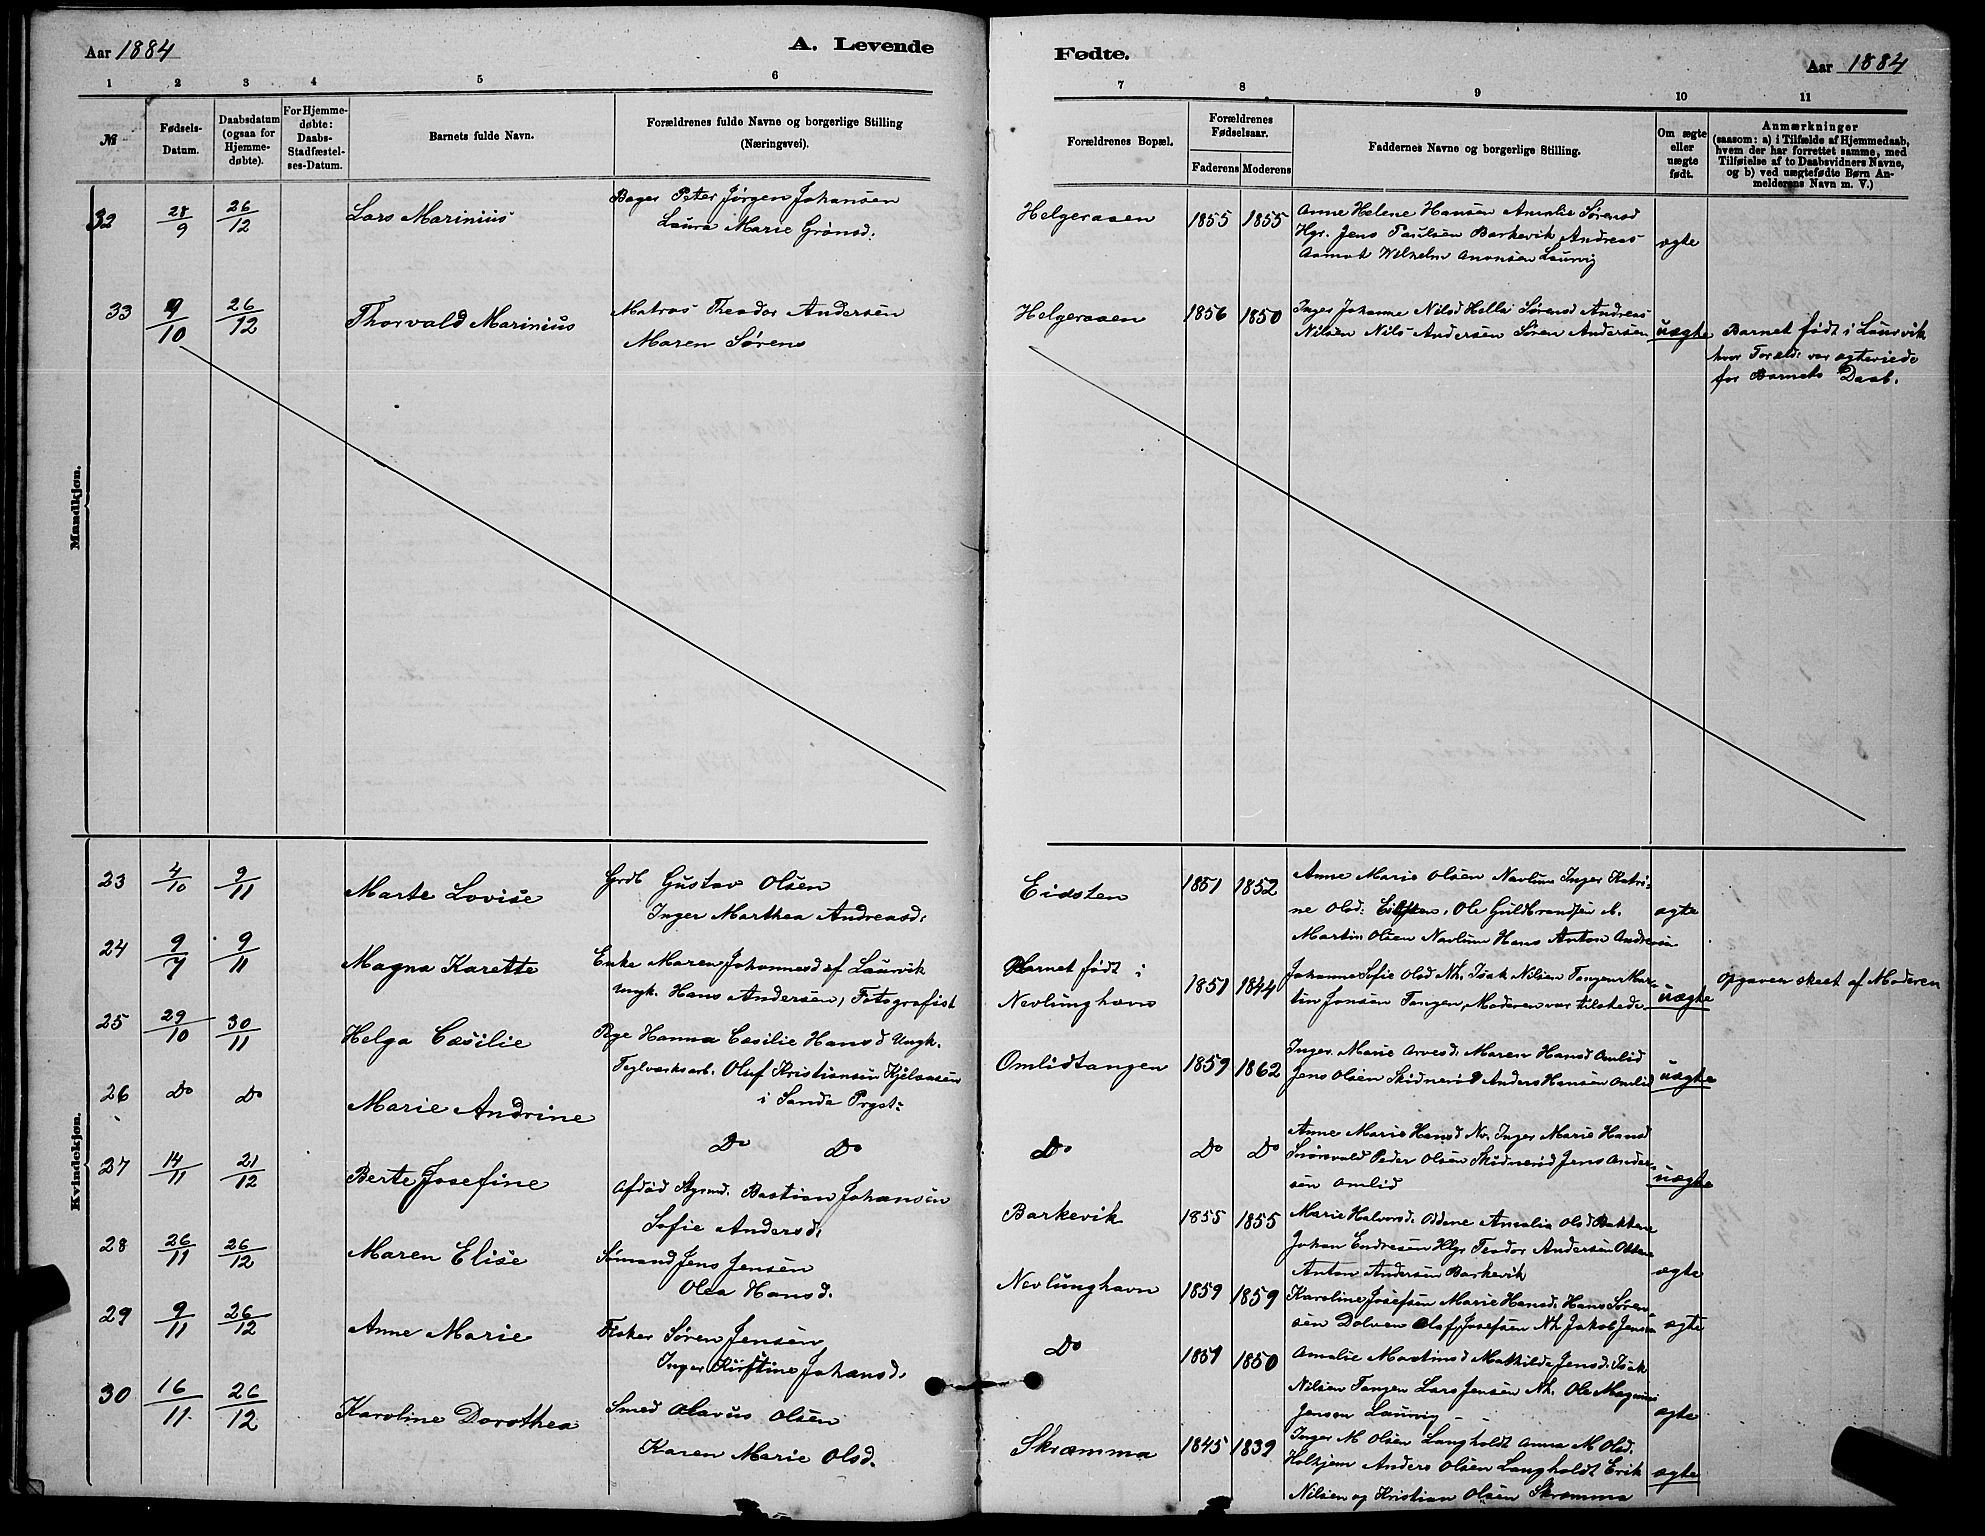 Aar 1884
A. Levende
1 2 3 4 5 6
№
Fødsels-Datum.
Daabsdatum (ogsaa for Hjemmedøbte).
For Hjemmedøbte: Daabs-Stadfæstelses-Datum.
Barnets fulde Navn.
Forældrenes fulde Navne og borgerlige Stilling (Næringsvei).
Mandkjøn.
32 28/9 26/12 Lars Marinius
Bager Peter Jørgen Johansen
Laura Marie Grønsd.
33 9/10 26/12 Thorvald Marinius
Matros Theodor Andersen
Maren Sørens
Kvindekjøn.
23 4/10 9/11 Marte Lovise
Grdb Gustav Olsen
Inger Marthea Andreasd.
24 9/7 9/11 Magna Karette
Enke Maren Johannesd af Laurvik
Ungk. Hans Andersen, Fotografist
25 29/10 30/11 Helga Cæsilie
Pge Hanna Cæsilie Hansd Ungk.
Teglværksarb. Oluf Kristiansen Kjelaasen
i Sande Prgst:
26 Do Do Marie Andrine
Do Do
27 14/11 21/12 Berte Josefine
Afdød Styrmd. Bastian Johansen
Sofie Andersd.
28 26/11 26/12 Maren Elise
Sømand Jens Jensen
Olea Hansd.
29 9/11 26/12 Anne Marie
Fisker Søren Jensen
Inger Kirstine Johansd.
30 16/11 26/12 Karoline Dorothea
Smed Olavus Olsen
Karen Marie Olsd.
Fødte.
Aar 1884
7 8 9 10 11
Forældrenes Bopæl.
Forældrenes Fødselsaar.
Faderens Moderens
Faddernes Navne og borgerlige Stilling.
Om ægte eller uægte født.
Anmærkninger
(saasom: a) i Tilfælde af Hjemmedaab,
hvem der har forrettet samme, med
Tilføielse af to Daabsvidners Navne,
og b) ved uægtefødte Børn Anmelderens Navn m. V.)
Helgeraaen 1855 1855
Anne Helene Hansen Amalie Sørensd
Hgr. Jens Paulsen Barkevik Andreas
Aamot Wilhelm Anonsen Laurvig
ægte
Helgeraaen 1856 1850
Inger Johanne Nilsd Hella Sørensd Andreas
Nilsen Nils Andersen Søren Andersen
uægte
Barnet født i Laurvik
hvor Foræld: var ægteviede
for Barnets Daab.
Eidsten 1851 1852
Anne Marie Olsen Navlum Inger Katri-
ne Olsd: Eidsten, Ole Guldbrandsen
Martin Olsen Navlum Hans Anton
ægte
Barnet født i
Nevlunghavn 1851 1844
Johanne Sofie Olsd Nh. Isak Nilsen Tangen Mar-
tin Jonsen Tangen, Moderen var tilstede.
uægte
Opgaven skeet af Moderen
Omlidtangen 1859 1862
Inger Marie Arvesd. Maren Hansd Omlid
Jens Olsen Skidnerød Anders Hansen Omlid
uægte
Do Do Do
Anne Marie Hansd Inger Marie Hansd
Peder Olsen Skidnerød Jens Ander-
sen Omlid
uægte
Barkevik 1855 1855
Marie Halvorsd. Oddene Amalia Olsd Bakkene
Johan Endresen Hlgr Teodor Andersen
Anton Andersen Barkevik
ægte
Nevlunghavn 1859 1859
Karoline Josefsen Marie Hansd. Hans Søren-
sen Dolven Olaf Josefsen Nh Jakob Jensen
ægte
Do 1851 1850
Amalie Martinsd Mathilde Jensd. Isak
Nilsen Tangen Lars Jensen Nh. Ole Magnus
Jensen Laurvig
ægte
Skræmma 1845 1839
Inger M Olsen Langholdt Anna M Olsd.
Holhjem Anders Olsen Langholdt Erik
Nilsen og Kristian Olsen Skræmma
ægte